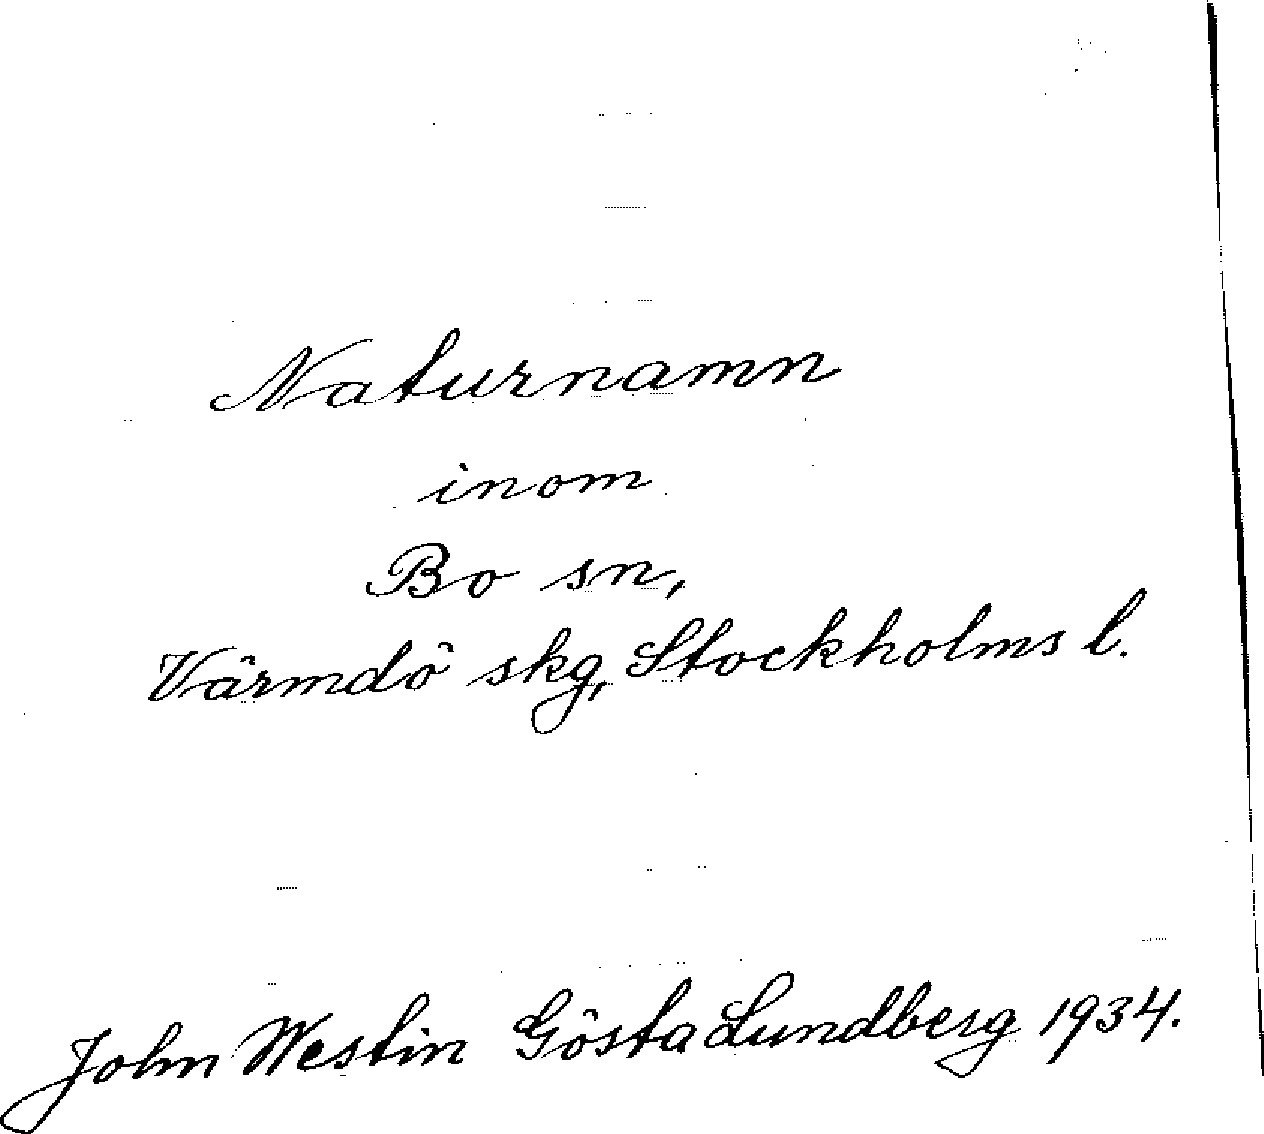 Naturnamn
inom
Bo sn,
Värmdö skg, Stockholms l.
John Westin Gösta Lundberg 1934.